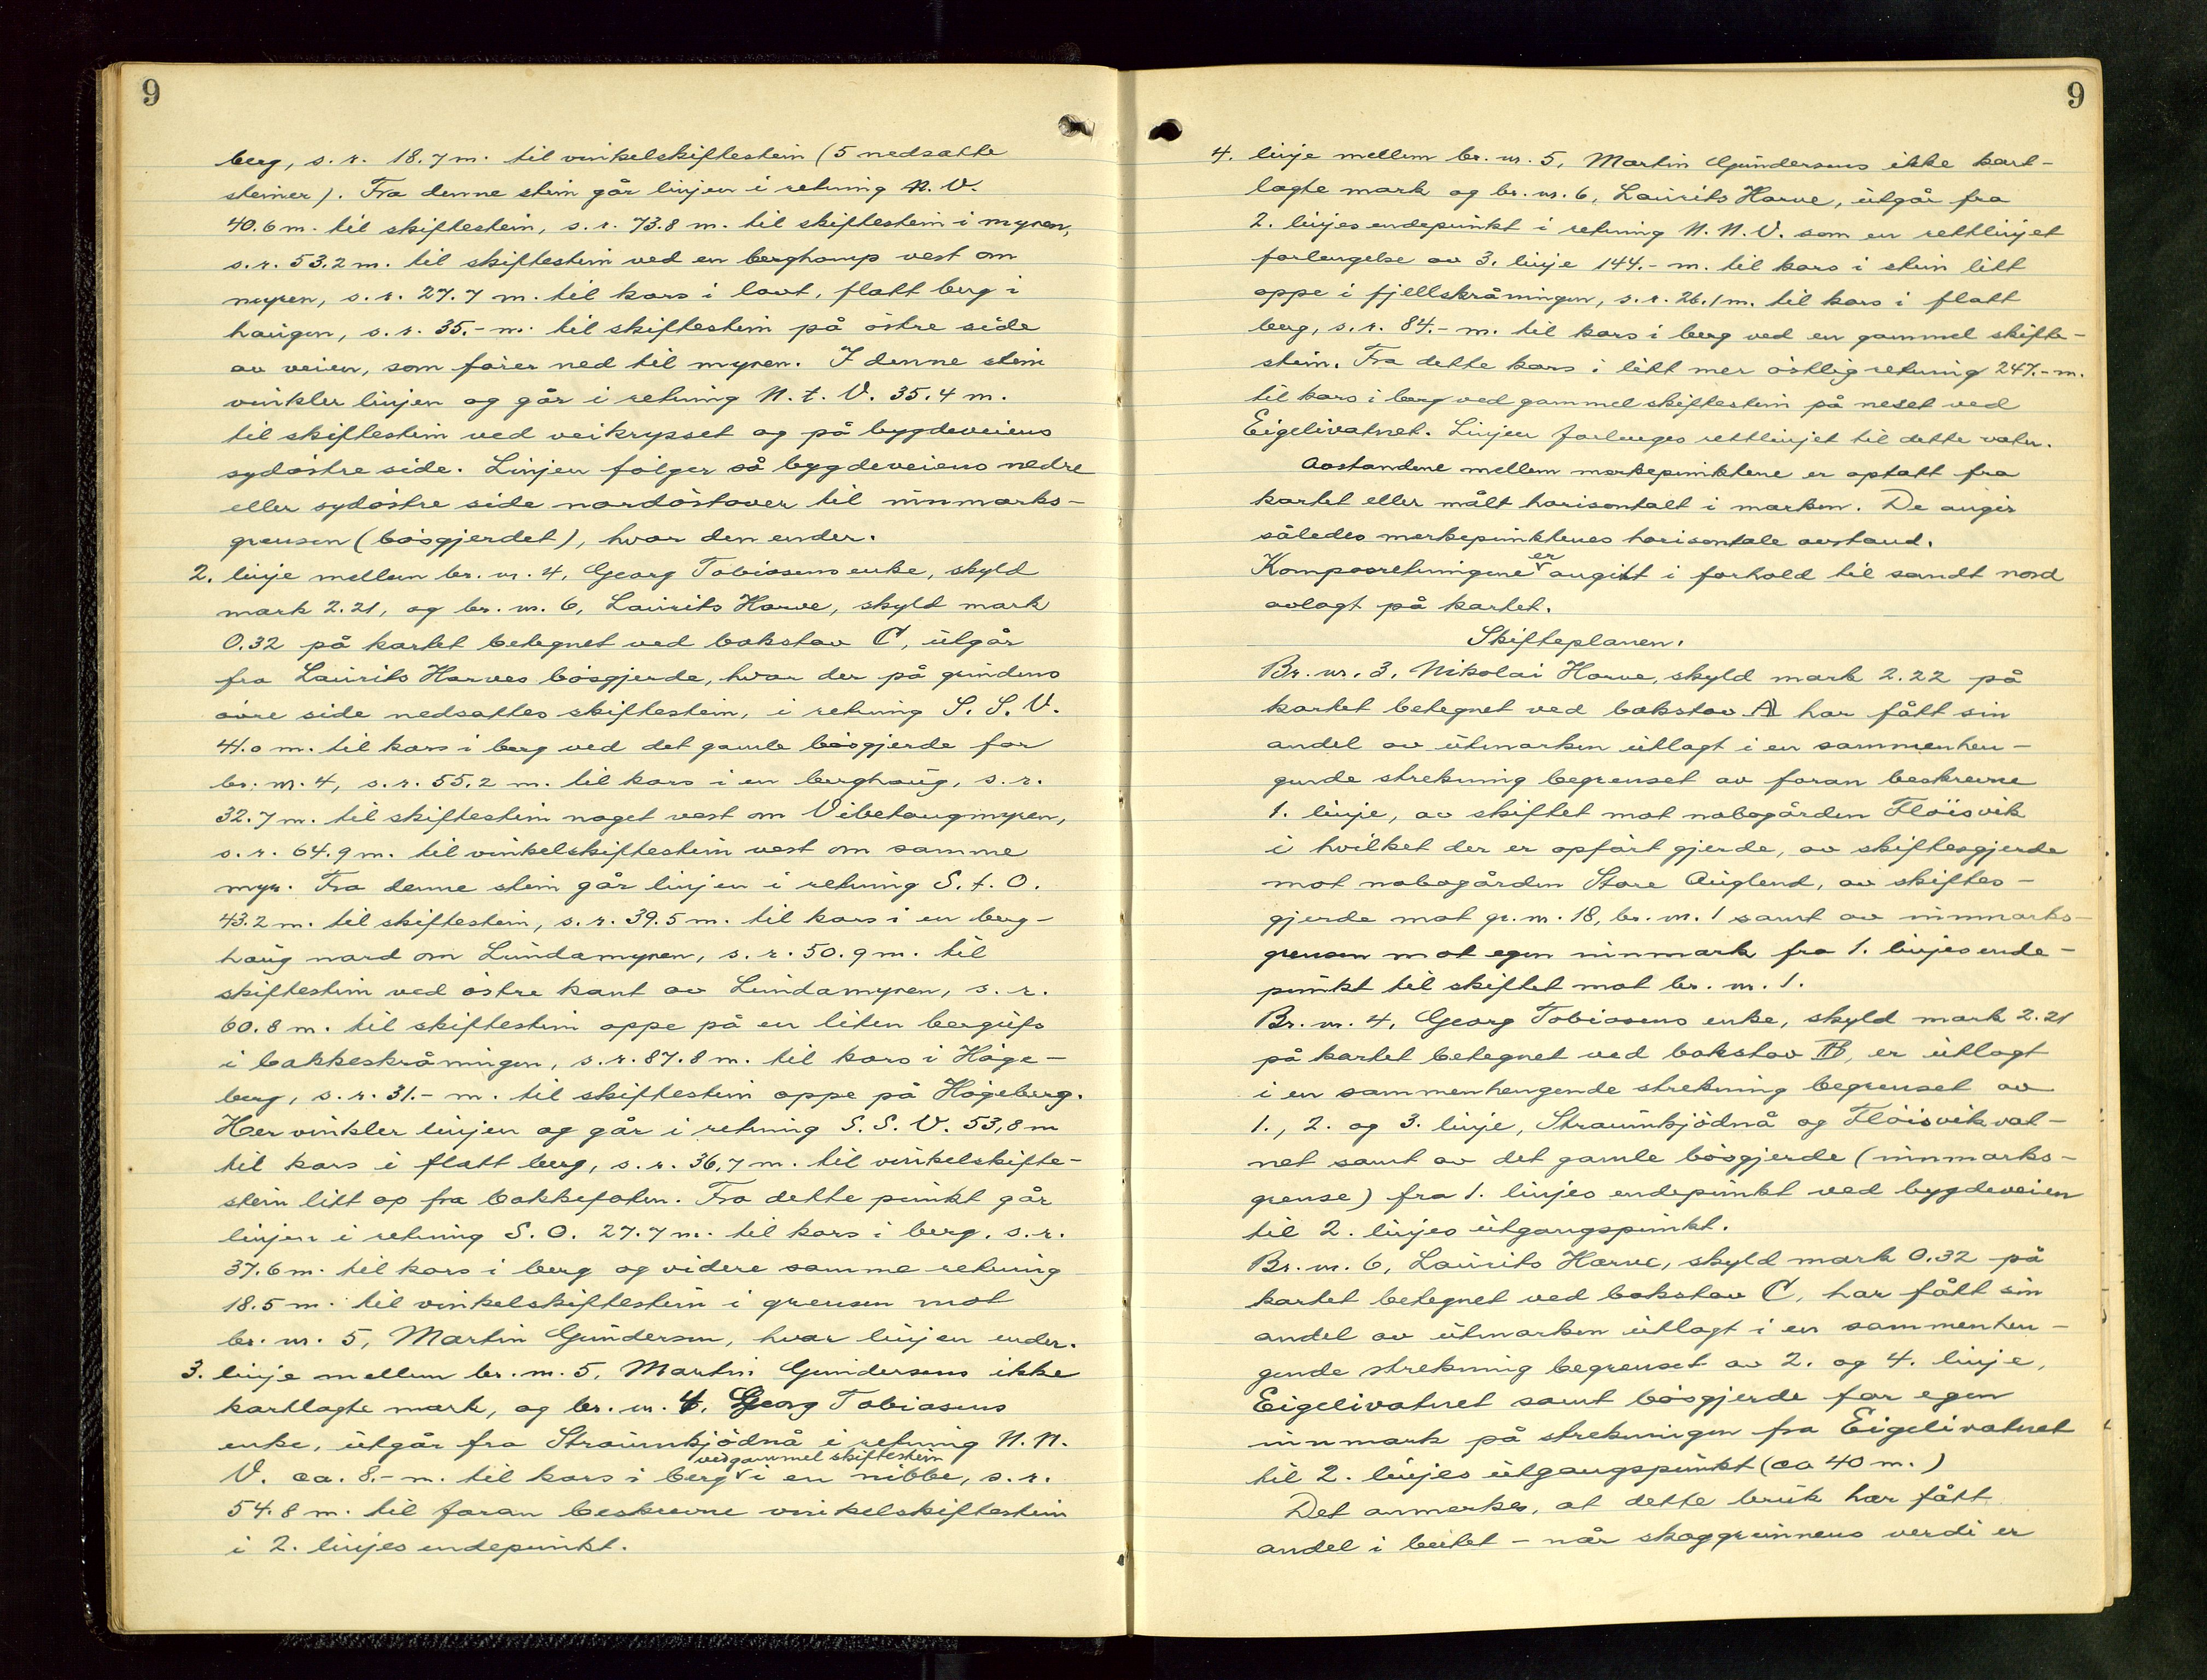 9
berg, s. r. 18.7 m. til vinkelskiftestein (5 nedsatte
steiner). Fra denne stein går linjen i retning N. V.
40.6 m. til skiftestein, s. r. 73.8 m. til skiftestein i myren,
s. r. 53.2 m. til skiftestein ved en berghamp vest om
myren, s. r. 27.7 m. til kors i lavt, flatt berg i
haugen, s. r. 35.- m. til skiftestein på östre side
av veien, som förer ned til myren. I denne stein
vinkler linjen og går i retning N. t. V. 35.4 m.
til skiftestein ved veikrysset og på bygdeveiens
sydöstre side. Linjen fölger så bygdeveiens nedre
eller sydöstre side nordöstover til innmarks-
grensen (bösgjerdet), hvor den ender.
2. linje mellem br. nr. 4, Georg Tobiasens enke, skyld
mark 2.21, og br. nr. 6, Laurits Harve, skyld mark
0.32 på kartet betegnet ved bokstav C, utgår
fra Laurits Harves bösgjerde, hvor der på grindens
övre side nedsattes skiftestein, i retning S. S. V.
41.0 m. til kors i berg ved det gamle bösgjerde for
br. nr. 4, s. r. 55.2 m. til kors i en berghaug, s. r.
32.7 m. til skiftestein noget vest om Vibehaugmyren,
s. r. 64.9 m. til vinkelskiftestein vest om samme
myr. Fra denne stein går linjen i retning S. t. O.
43.2 m. til skiftestein, s. r. 39.5 m. til kors i en berg-
haug nord om Lundamyren, s. r. 50.9 m. til
skiftestein ved östre kant av Lundamyren, s. r.
60.8 m. til skiftestein oppe på en liten bergufs
i bakkeskråningen, s. r. 87.8 m. til kors i Höge-
berg, s. r. 31.- m. til skiftestein oppe på Högeberg.
Her vinkler linjen og går i retning S. S. V. 53,8 m
til kors i flatt berg, s. r. 36,7 m. til vinkelskifte-
stein litt op fra bakkefoten. Fra dette punkt går
linjen i retning S. O. 27.7 m. til kors i berg, s. r.
37.6 m. til kors i berg og videre samme retning
18.5 m. til vinkelskiftestein i grensen mot
br. nr. 5, Martin Gundersen, hvor linjen ender.
3. linje mellem br. nr. 5, Martin Gundersens ikke
kartlagte mark, og br. nr. 4, Georg Tobiasens
enke, utgår fra Straumkjödnå i retning N. N.
V. ca. 8.- m. til kors i berg ved gammel skiftestein i en nibbe, s. r.
54.8 m. til foran beskrevne vinkelskiftestein
i 2. linjes endepunkt.
9
4. linje mellem br. nr. 5, Martin Gundersens ikke kart-
lagte mark og br. nr. 6, Laurits Harve, utgår fra
2. linjes endepunkt i retning N. N. V. som en rettlinjet
forlengelse av 3. linje 144.- m. til kors i stein litt
oppe i fjellskråningen, s. r. 26.1 m. til kors i flatt
berg, s. r. 84.- m. til kors i berg ved en gammel skifte-
stein. Fra dette kors i litt mer östlig retning 247.- m.
til kors i berg ved gammel skiftestein på neset ved
Eigelivatnet. Linjen forlenges rettlinjet til dette vatn.
Avstandene mellem merkepunktene er optatt fra
kartet eller målt horisontalt i marken. De angir
således merkepunktenes horisontale avstand.
Kompasretningene er angitt i forhold til sandt nord
avlagt på kartet.
Skifteplanen.
Br. nr. 3, Nikolai Harve, skyld mark 2.22 på
kartet betegnet ved bokstav A har fått sin
andel av utmarken utlagt i en sammenhen-
gende strekning begrenset av foran beskrevne
1. linje, av skiftet mot nabogården Flöisvik
i hvilket der er opfört gjerde, av skiftesgjerde
mot nabogården Store Auglend, av skiftes-
gjerde mot gr. nr. 18, br. nr. 1 samt av innmarks-
grensen mot egen innmark fra 1. linjes ende-
punkt til skiftet mot br. nr. 1.
Br. nr. 4, Georg Tobiasens enke, skyld mark 2.21
på kartet betegnet ved bokstav B, er utlagt
i en sammenhengende strekning begrenset av
1., 2. og 3. linje, Straumkjödnå og Flöisvikvat-
net samt av det gamle bösgjerde (innmarks-
grense) fra 1. linjes endepunkt ved bygdeveien
til 2. linjes utgangspunkt.
Br. nr. 6, Laurits Harve, skyld mark 0.32 på
kartet betegnet ved bokstav C, har fått sin
andel av utmarken utlagt i en sammenhen-
gende strekning begrenset av 2. og 4. linje,
Eigelivatnet samt bösgjerde for egen
innmark på strekningen fra Eigelivatnet
til 2. linjes utgangspunkt (ca 40 m.)
Det anmerkes, at dette bruk har fått
andel i beitet - når skoggrunnens verdi er